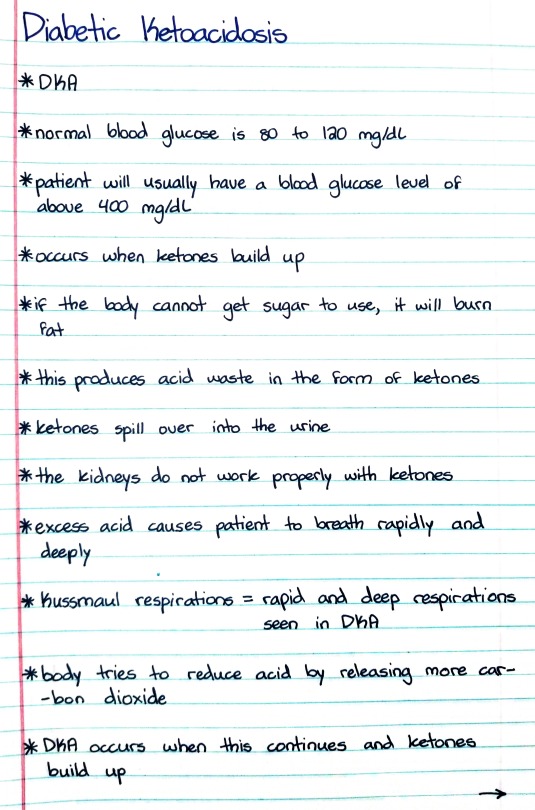 Diabetic Ketoacidosis
* DKA
* normal blood glucose is 80 to 120 mg/dL
* patient will usually have a blood glucose level of
above 400 mg/dL
* occurs when ketones build up
* if the body cannot get sugar to use, it will burn
fat
* this produces acid waste in the form of ketones
* ketones spill over into the urine
* the kidneys do not work properly with ketones
* excess acid causes patient to breath rapidly and
deeply
* Kussmaul respirations = rapid and deep respirations
seen in DKA
* body tries to reduce acid by releasing more car-
-bon dioxide
* DKA occurs when this continues and ketones
build up
→